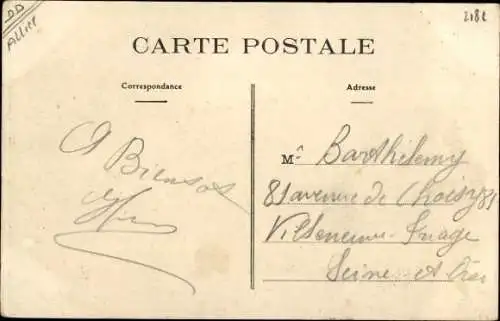 DD
ALLIER
2182
CARTE POSTALE
Correspondance
Adresse
A Bientot
Mr Barthelemy
81 avenue de Choisy 81
Villeneuve
Seine et Oise